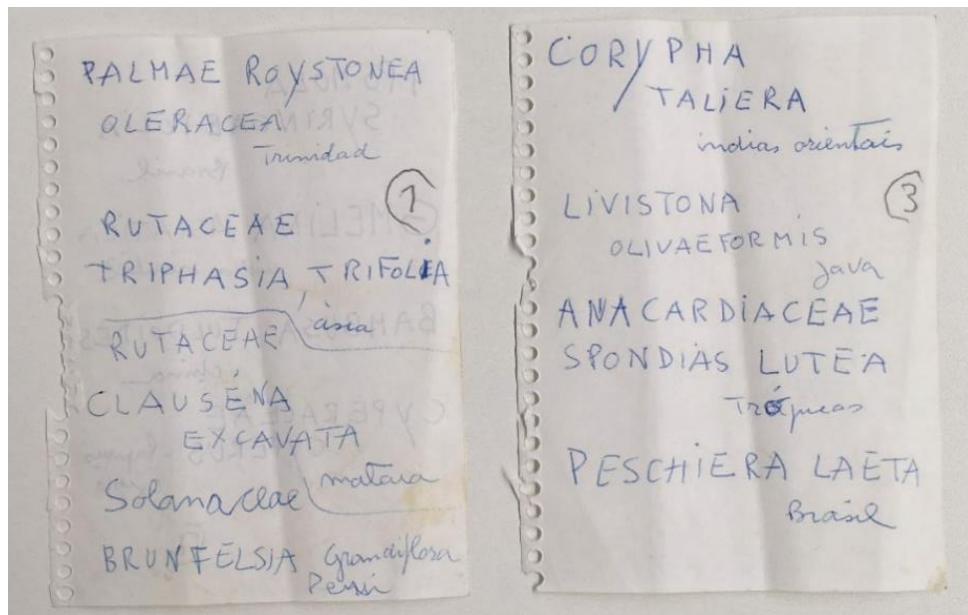 PALMAE ROYSTONEA
OLERACEA
Trinidad
1
RUTACEAE
TRIPHASIA TRIFOLIA
ásia
RUTACEAE
CLAUSENA
EXCAVATA
Solanaceae
BRUNFELSIA Grandiflora
CORYPHA
TALIERA
indias orientais
3
LIVISTONA
OLIVAEFORMIS
Java
ANACARDIACEAE
SPONDIAS LUTEA
Trópicos
PESCHIERA LAETA
Brasil